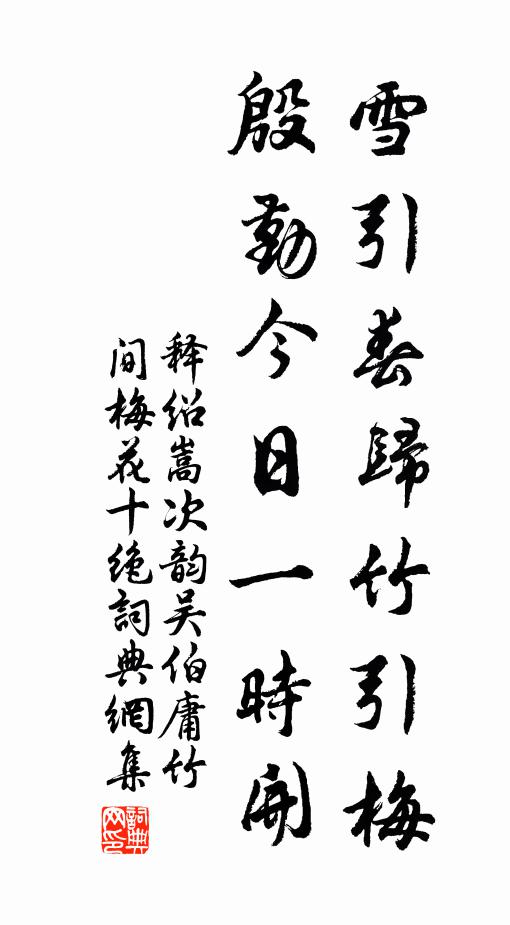 雪引春歸竹引梅
殷勤今日一時開
释绍嵩次韵吴伯庸竹
间梅花十绝詞典網集
詞典網印